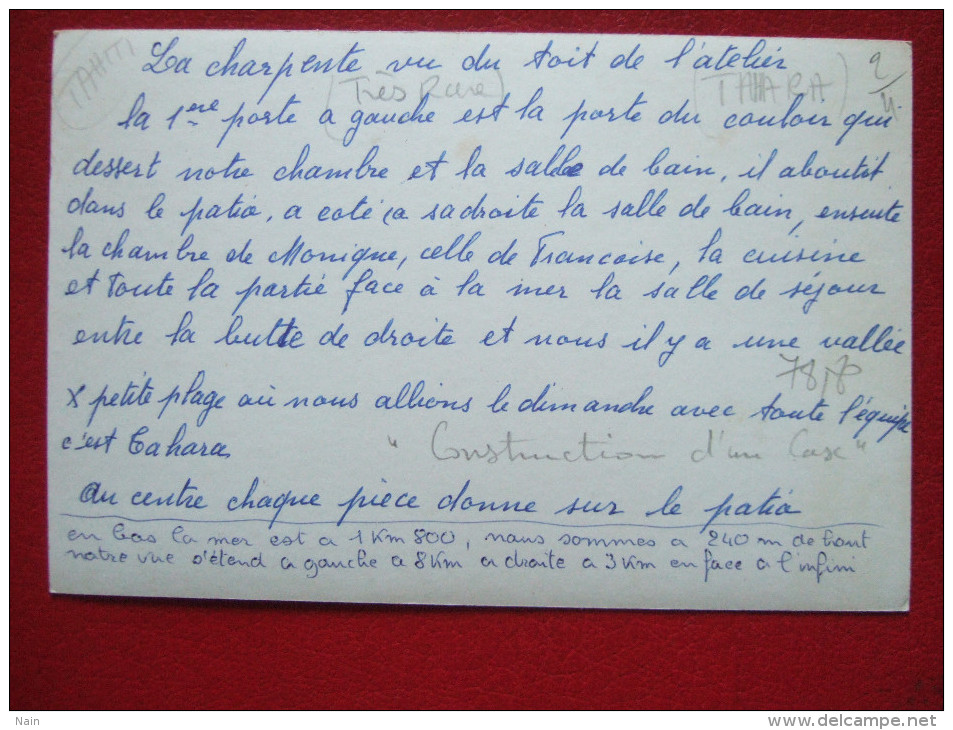 La charpente vu du toit de l'atelier
TAHITI
(Très Rare)
(TAHARA)
la 1ère porte a gauche est la porte du couloir qui
dessert notre chambre et la salle de bain, il aboutit
dans le patio, a coté (a sa droite la salle de bain, ensuite
la chambre de Monique, celle de Francoise, la cuisine
et toute la partie face à la mer la salle de séjour
entre la butte de droite et nous il y a une vallée
x petite plage où nous allions le dimandre avec toute l'équipe
c'est Tahara
"Construction d'un Case"
au centre chaque pièce donne sur le patio
en bas la mer est a 1 Km 800, nous sommes a 240 m de haut
notre vue s'étend a gauche a 8 Km a droite a 3 Km en face a l'infini
Nain
www.delcampe.net